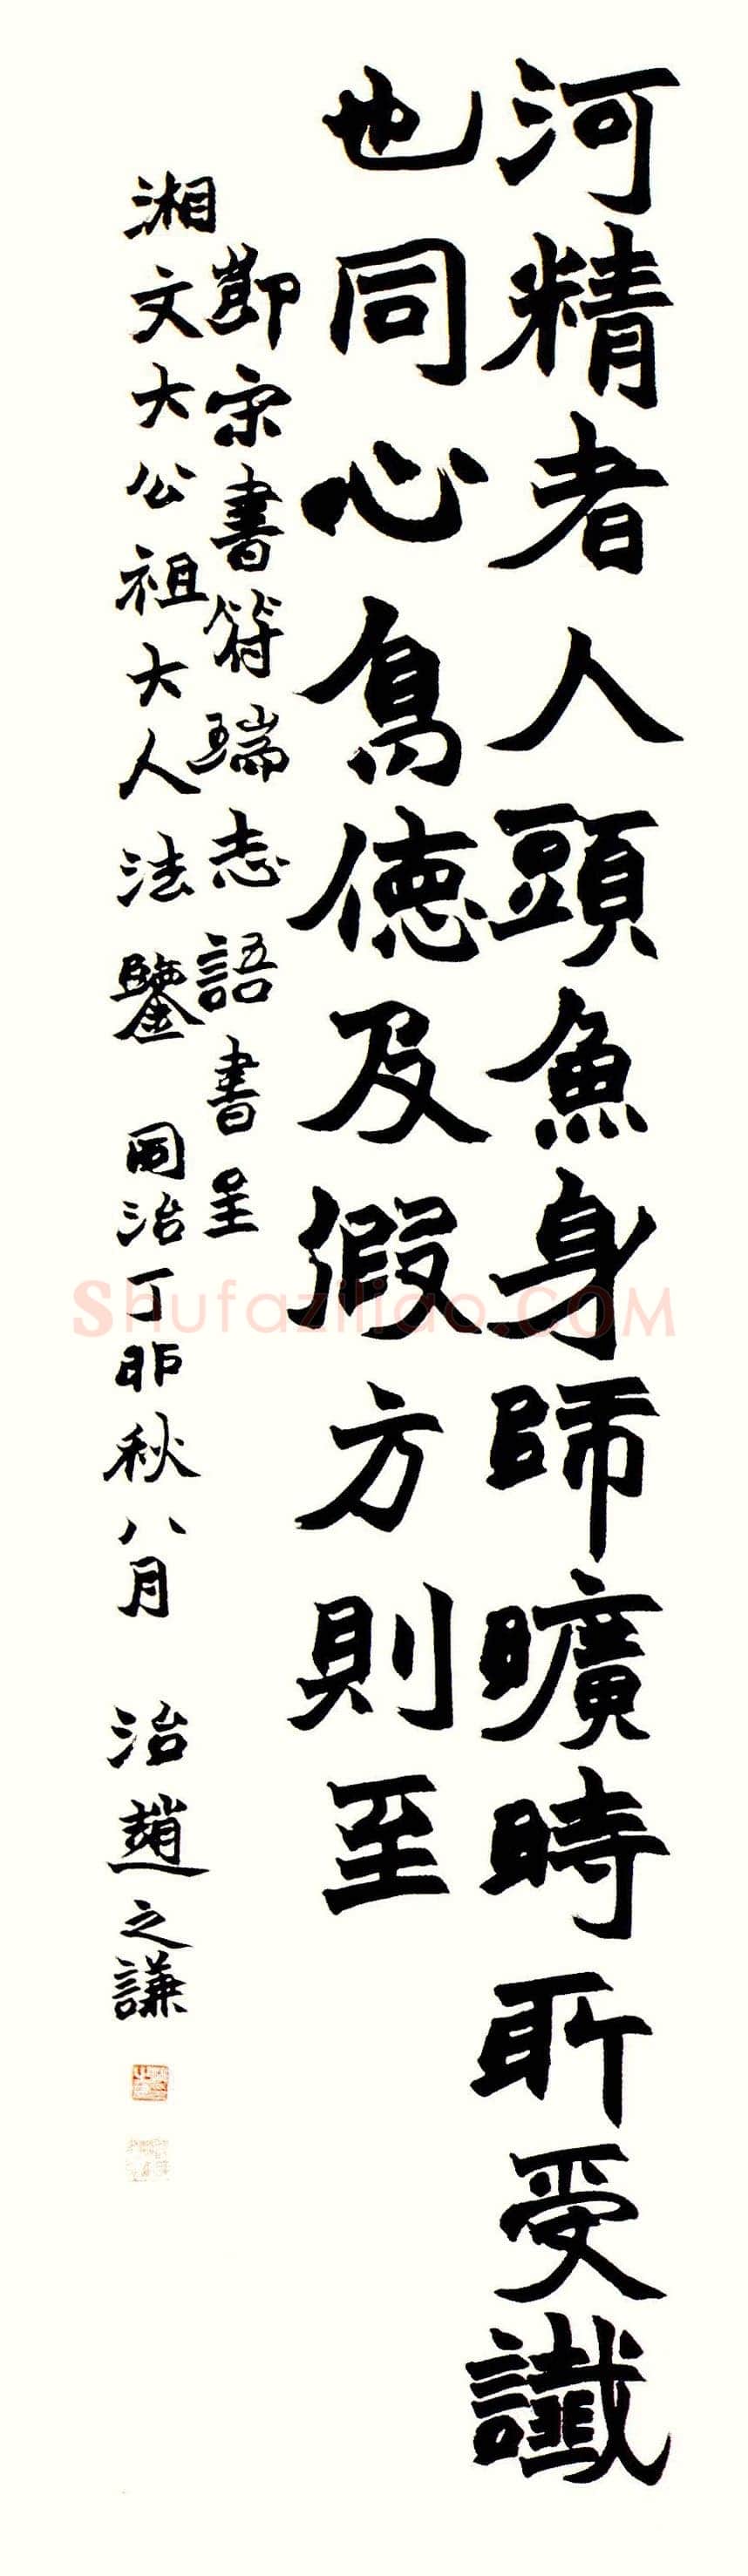 河精者人頭魚身師曠時所受讖
也同心鳥德及假方則至
節宋書符瑞志語書呈
湘文大公祖大人法鑒 同治丁卯秋八月 治趙之謙
Shufaziliao.COM